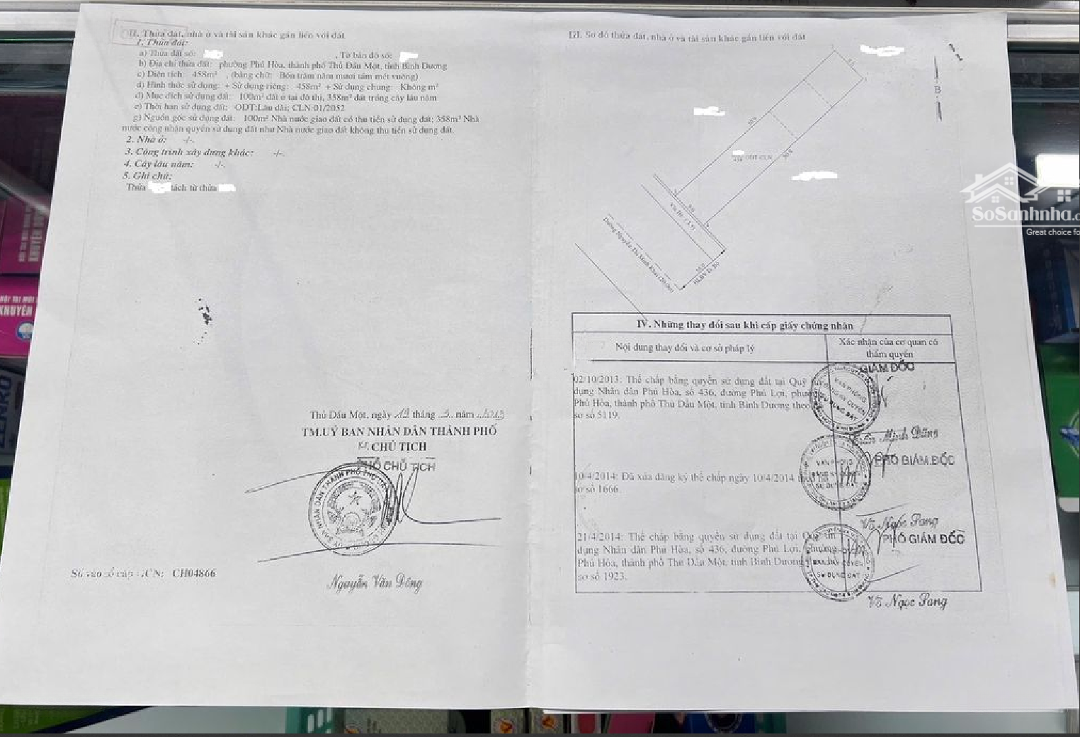 II. Thửa đất, nhà ở và tài sản khác gắn liền với đất
1. Thửa đất:
a) Thửa đất số: , Tờ bản đồ số:
b) Địa chỉ thửa đất: phường Phú Hòa, thành phố Thủ Dầu Một, tỉnh Bình Dương
c) Diện tích: 458m² , (bằng chữ: Bốn trăm năm mươi tám mét vuông)
d) Hình thức sử dụng: + Sử dụng riêng: 458m² + Sử dụng chung: Không m²
đ) Mục đích sử dụng đất: 100m² đất ở tại đô thị, 358m² đất trồng cây lâu năm
e) Thời hạn sử dụng đất: ODT:Lâu dài; CLN-01/2052
g) Nguồn gốc sử dụng đất: 100m² Nhà nước giao đất có thu tiền sử dụng đất; 358m² Nhà
nước công nhận quyền sử dụng đất như Nhà nước giao đất không thu tiền sử dụng đất.
2. Nhà ở: -/-
3. Công trình xây dựng khác: -/-.
4. Cây lâu năm: -/-.
5. Ghi chú:
Thửa tách từ thửa
Thủ Dầu Một, ngày 19 tháng 3 năm
TM.UỶ BAN NHÂN DÂN THÀNH PHỐ
CHỦ TỊCH
PHÓ CHỦ TỊCH
Nguyễn Văn Đông
Số vào sổ cấp GCN: CH04866
III. Sơ đồ thửa đất, nhà ở và tài sản khác gắn liền với đất
B
ODT CLN
Vỉa hè
Đường Nguyễn Thị Minh Khai
HLBV
IV. Những thay đổi sau khi cấp giấy chứng nhận
Nội dung thay đổi và cơ sở pháp lý
Xác nhận của cơ quan có
thẩm quyền
02/10/2013: Thế chấp bằng quyền sử dụng đất tại Quỹ
dụng Nhân dân Phú Hòa, số 436, đường Phú Lợi, phườ
Phú Hòa, thành phố Thủ Dầu Một, tỉnh Bình Dương theo
sơ số 5119.
GIÁM ĐỐC
Minh Dũng
10/4/2014: Đã xóa đăng ký thế chấp ngày 10/4/2014 theo hồ
sơ số 1666.
PHÓ GIÁM ĐỐC
Võ Ngọc Sang
21/4/2014: Thế chấp bằng quyền sử dụng đất tại Quỹ tín
dụng Nhân dân Phú Hòa, số 436, đường Phú Lợi, phường
Phú Hòa, thành phố Thủ Dầu Một, tỉnh Bình Dương
sơ số 1923.
PHÓ GIÁM ĐỐC
Võ Ngọc Sang
SoSanhnha.c
Great choice fo
KHUYẾN